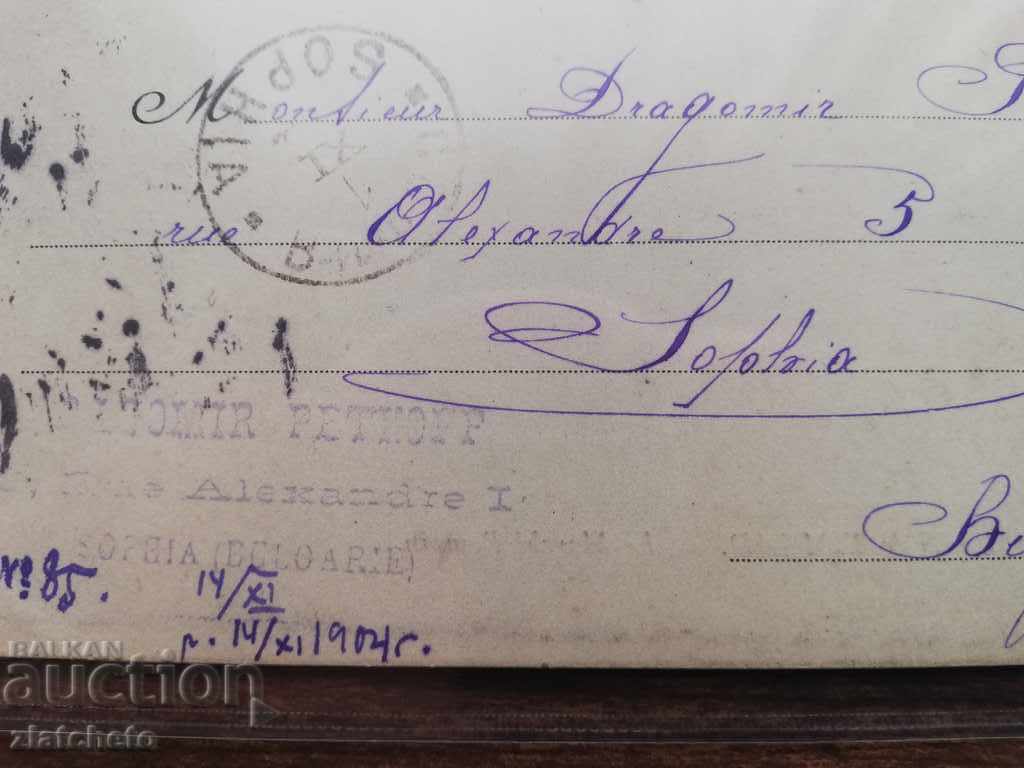 SOPHIA
Monsieur Dragomir
rue Alexandre 5
Sophia
TOMIR PETKOFF
Rue Alexandre I
SOPHIA (BULGARIE)
№ 85.
14/XI
р. 14/XI 1904 г.
BALKAN
auction
zlatcheto